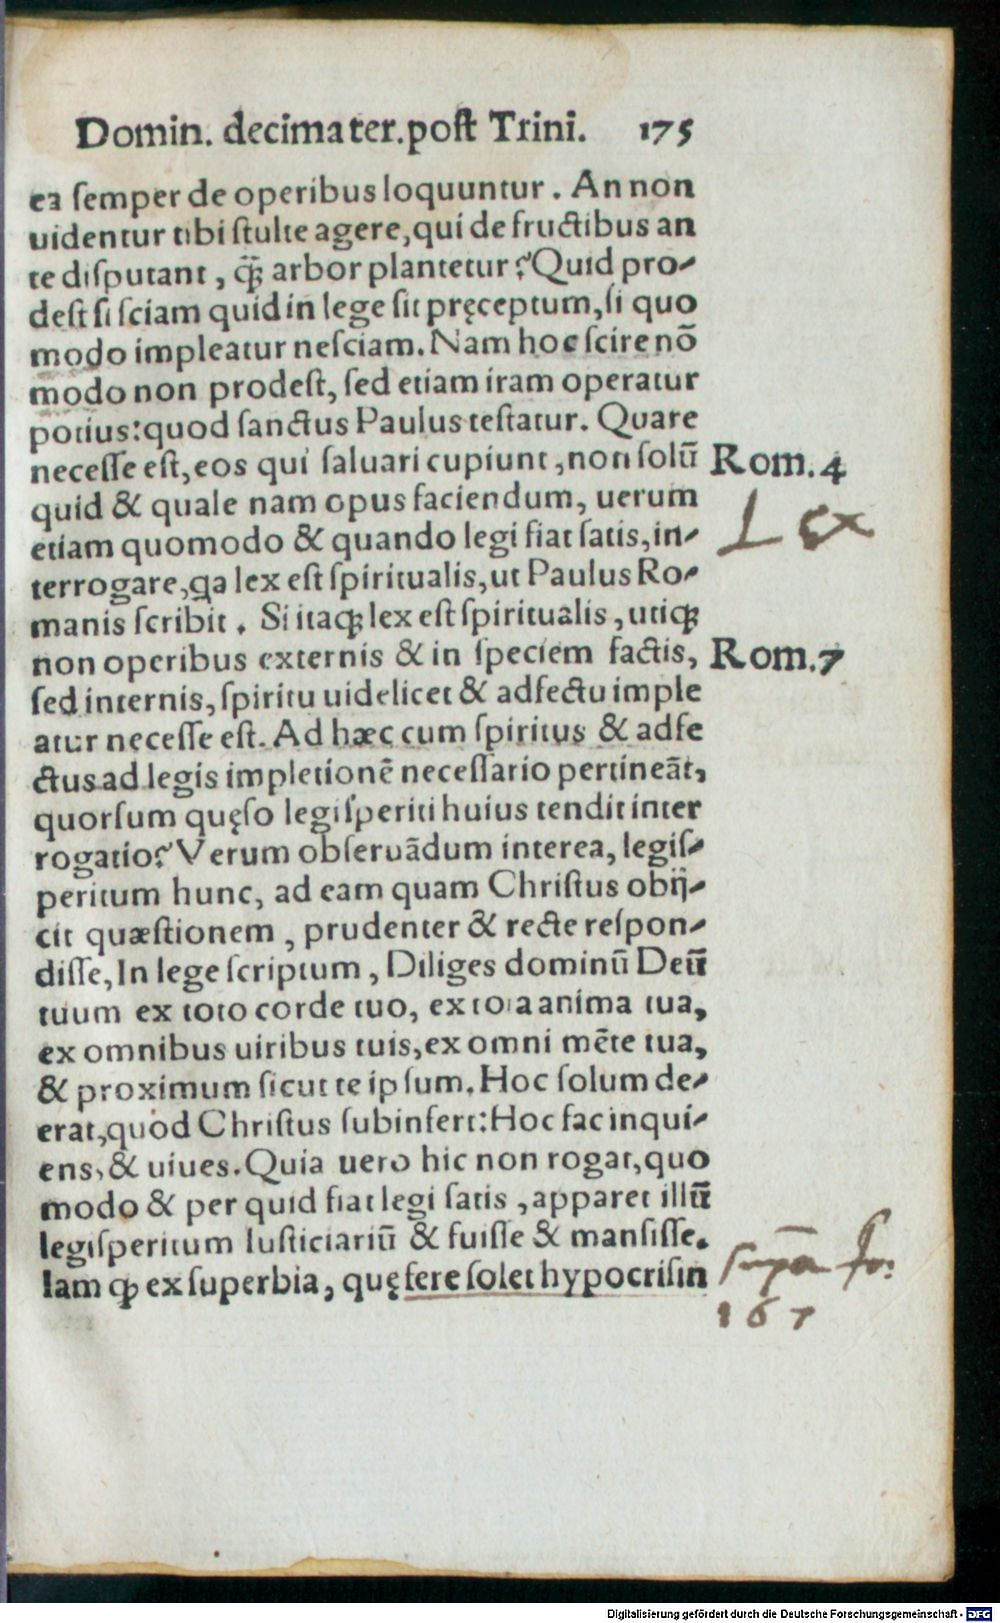 Domin. decima ter. post Trini. 175
ea ſemper de operibus loquuntur. An non
uidentur tibi ſtulte agere, qui de fructibus an
te diſputant, q̃ꝫ arbor plantetur? Quid pro-
deſt ſi ſciam quid in lege ſit pręceptum, ſi quo
modo impleatur neſciam. Nam hoc ſcire nō
modo non prodeſt, ſed etiam iram operatur
potius: quod ſanctus Paulus teſtatur. Quare
neceſſe eſt, eos qui ſaluari cupiunt, non ſolū
Rom. 4
quid & quale nam opus faciendum, uerum
etiam quomodo & quando legi fiat ſatis, in-
Lex
terrogare, qa lex eſt ſpiritualis, ut Paulus Ro-
manis ſcribit. Si itaqꝫ lex eſt ſpiritualis, utiqꝫ
non operibus externis & in ſpeciem factis,
Rom. 7
ſed internis, ſpiritu uidelicet & adfectu imple
atur neceſſe eſt. Ad hæc cum ſpiritus & adfe
ctus ad legis impletionē neceſſario pertineāt,
quorſum quęſo legiſperiti huius tendit inter
rogatio? Verum obſeruādum interea, legiſ-
peritum hunc, ad eam quam Chriſtus obij-
cit quæſtionem, prudenter & recte reſpon-
diſſe, In lege ſcriptum, Diliges dominū Deū
tuum ex toto corde tuo, ex tota anima tua,
ex omnibus uiribus tuis, ex omni mēte tua,
& proximum ſicut te ipſum. Hoc ſolum de-
erat, quod Chriſtus ſubinfert: Hoc fac inqui-
ens, & uiues. Quia uero hic non rogat, quo
modo & per quid fiat legi ſatis, apparet illū
legiſperitum Iuſticiariū & fuiſſe & manſiſſe.
Iam qꝫ ex ſuperbia, quę fere ſolet hypocriſin
supra fo:
167
Digitalisierung gefördert durch die Deutsche Forschungsgemeinschaft - DFG